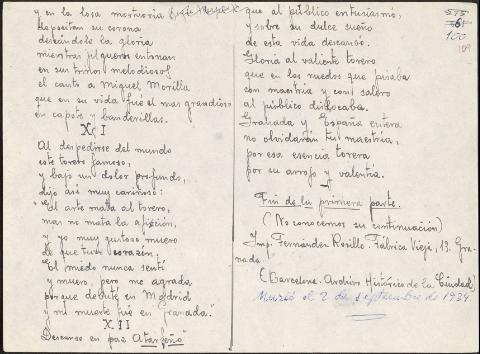 y en la losa mortuoria
depositan su corona
deseándole la gloria
mientras jilgueros entonan
en sus trinos melodiosos
el canto a Miguel Morilla
que en su vida fué el mas grandioso
en capote y banderillas.
XI
Al despedirse del mundo
este torero famoso,
y bajo un dolor profundo,
dijo así muy cariñoso:
"El arte mata al torero,
mas no mata la afición,
y yo muy gustoso muero
de que tuve corazón;
El miedo nunca sentí
y muero, pero me agrada
porque debuté en Madrid
y mi muerte fué en Granada."
XII
Descanse en paz Atarfeño
que al público entusiasmó,
y sobre su dulce sueño
de esta vida descansó.
Gloria al valiente torero
que en los ruedos que pisaba
con maestría y con salero
al público dislocaba.
Granada y España entera
no olvidarán tu maestría,
por esa esencia torera
por su arrojo y valentía.
Fin de la primera parte.
(No conocemos su continuación)
Imp. Fernández Rosillo. Fábrica Vieja, 13. Gra-
nada
(Barcelona. Archivo Histórico de la Ciudad)
Murió el 2 de septiembre de 1934.
100